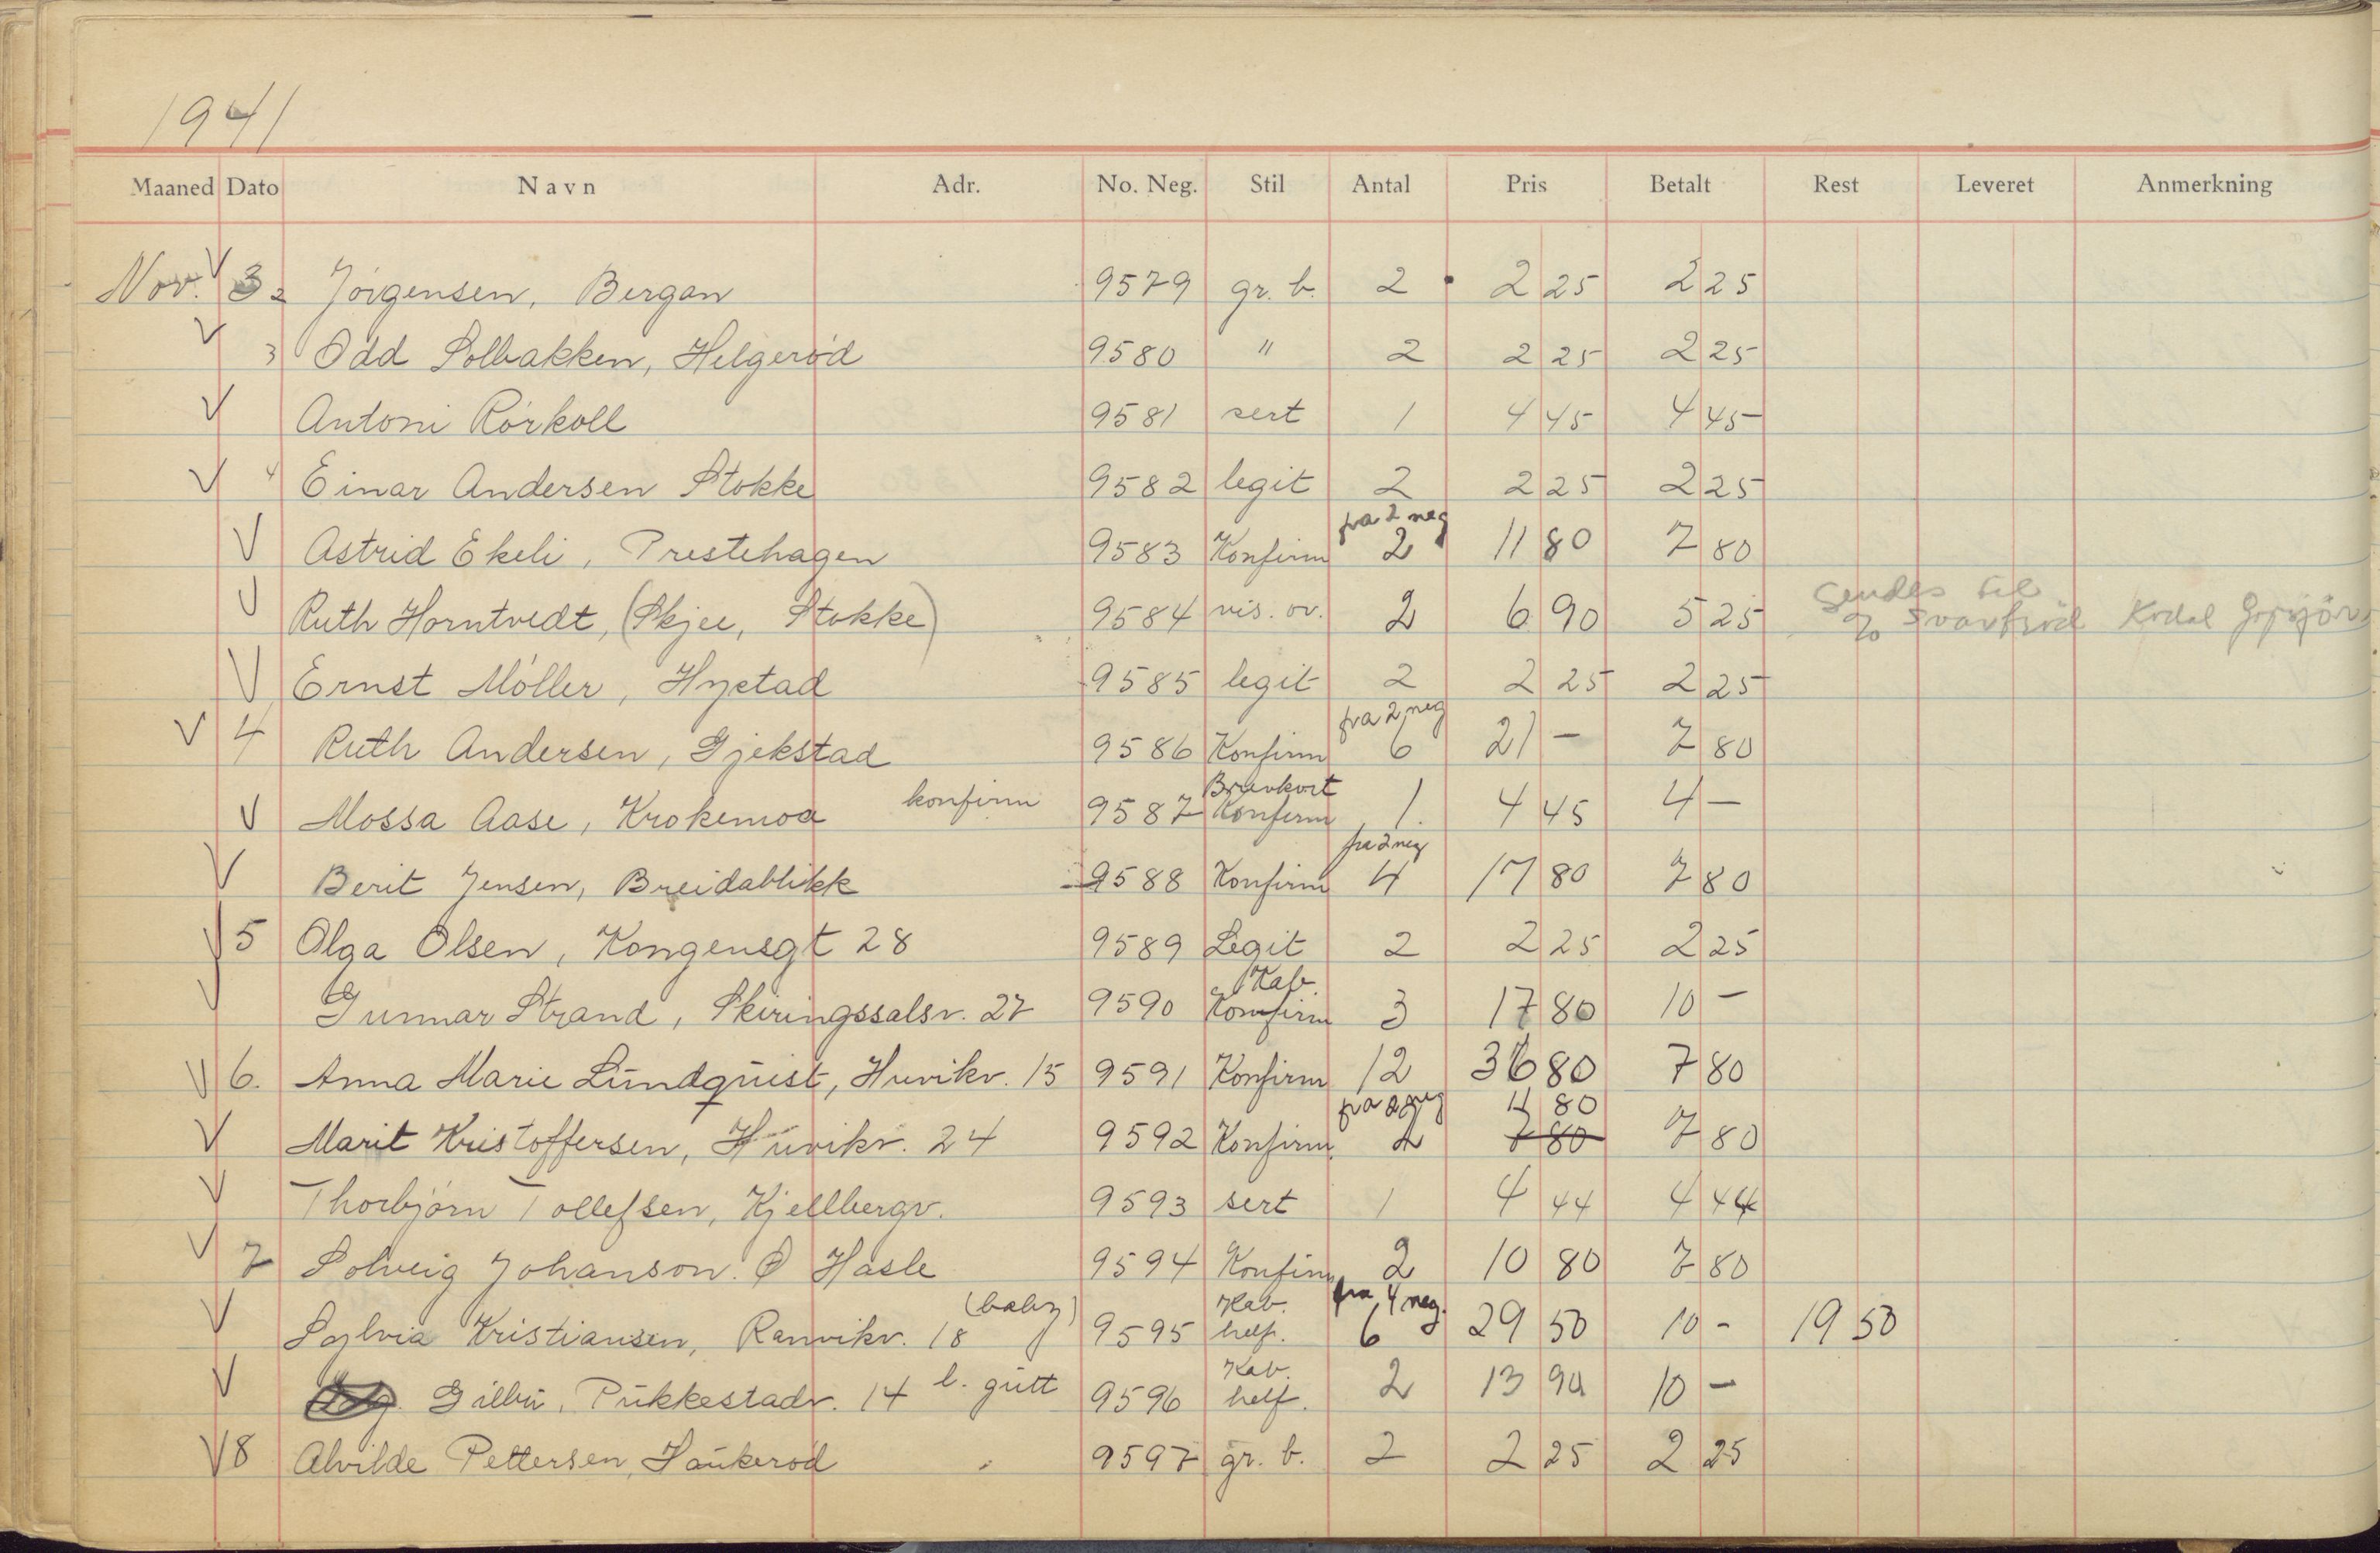 1941
Maaned Dato Navn Adr. No. Neg. Stil Antal Pris Betalt Rest Leveret Anmerkning
Nov. V 3 2 Jörgensen, Bergan 9579 gr. b. 2 2 25 2 25
V 3 Odd Solbakken, Helgeröd 9580 " 2 2 25 2 25
V Antoni Rörkoll 9581 sert 1 4 45 4 45
V 4 Einar Andersen Stokke 9582 legit 2 2 25 2 25
fra 2 neg
V Astrid Ekeli, Prestehagen 9583 Konfirm 2 11 80 7 80
Sendes til
V Ruth Horntvedt, (Skjee, Stokke) 9584 vis. ov. 2 6 90 5 25 % Kodal
V Ernst Möller, Hystad 9585 legit 2 2 25 2 25
fra 2 neg
V 4 Ruth Andersen, Gjekstad 9586 Konfirm 6 21 – 7 80
Brevkort
V Mossa Aase, Krokemoa konfirm 9587 Konfirm 1. 4 45 4 –
fra 2 neg
V Berit Jensen, Breidablikk 9588 Konfirm 4 17 80 7 80
V 5 Olga Olsen, Kongensgt 28 9589 Legit 2 2 25 2 25
Kab.
V Gunnar Strand, Skiringssalsv. 27 9590 Konfirm 3 17 80 10 –
V 6. Anna Marie Lundquist, Huvikv. 15 9591 Konfirm 12 36 80 7 80
fra 2 neg 11 80
V Marit Kristoffersen, Huvikv. 24 9592 Konfirm. 2 7 80 7 80
V Thorbjörn Tollefsen, Kjellbergv. 9593 sert 1 4 44 4 44
V 7 Solveig Johanson. Ø Hasle 9594 Konfirm 2 10 80 7 80
(baby) Kab. fra 4 neg.
V Sylvia Kristiansen, Ranvikv. 18 9595 helf. 6 29 50 10 - 19 50
Kab.
V Gilbu, Pukkestadv. 14 l. gutt 9596 helf. 2 13 90 10 –
V 8 Alvilde Pettersen, Haukeröd 9597 gr. b. 2 2 25 2 25